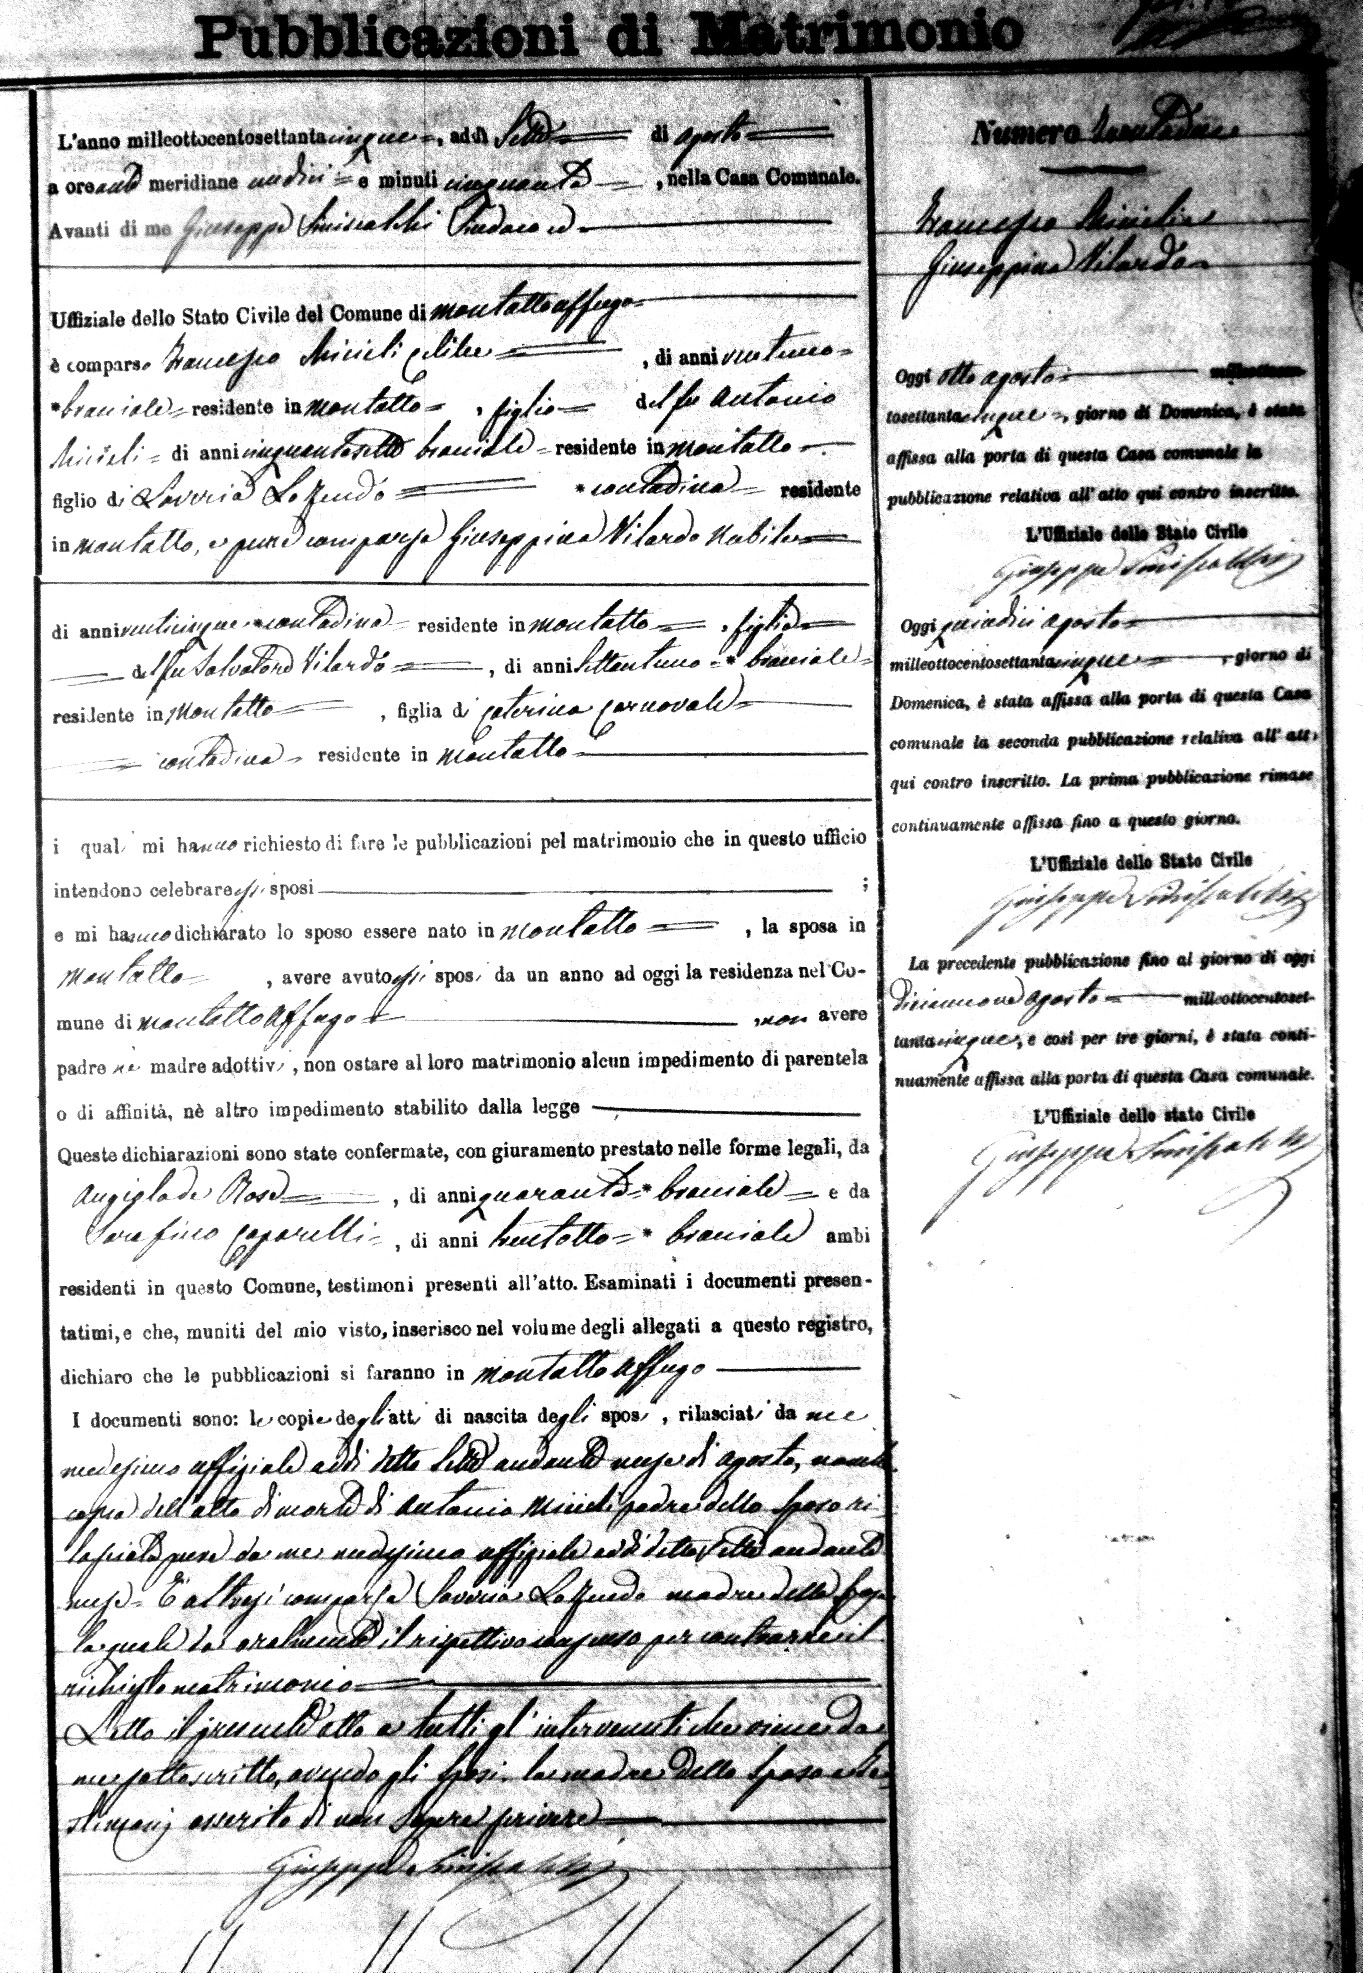 Pubblicazioni di Matrimonio
L'anno milleottocentosettanta cinque, addì Sette di agosto
a ore anti meridiane undici e minuti cinquanta, nella Casa Comunale.
Avanti di me Giuseppe Siniscalchi Sindaco ed
Uffiziale dello Stato Civile del Comune di Montalto Uffugo
è comparso Francesco Miceli celibe, di anni ventuno
*bracciale residente in Montalto, figlio del fu Antonio
Miceli di anni cinquantasette bracciale residente in Montalto
figlio di Saveria *contadina residente
in Montalto, e pure comparsa Giuseppina Vilardo Nubile
di anni venticinque *contadina residente in Montalto, figlia
del fu Salvatore Vilardo, di anni settantuno * bracciale
residente in Montalto, figlia di Caterina Carnovale
contadina residente in Montalto
i quali mi hanno richiesto di fare le pubblicazioni pel matrimonio che in questo ufficio
intendono celebrare essi sposi ;
e mi hanno dichiarato lo sposo essere nato in Montalto, la sposa in
Montalto, avere avuto essi sposi da un anno ad oggi la residenza nel Co-
mune di Montalto Uffugo, non avere
padre nè madre adottivi, non ostare al loro matrimonio alcun impedimento di parentela
o di affinità, nè altro impedimento stabilito dalla legge
Queste dichiarazioni sono state confermate, con giuramento prestato nelle forme legali, da
Rose, di anni quaranta * bracciale e da
Serafino Caparelli, di anni trentotto * bracciale ambi
residenti in questo Comune, testimoni presenti all'atto. Esaminati i documenti presen-
tatimi, e che, muniti del mio visto, inserisco nel volume degli allegati a questo registro,
dichiaro che le pubblicazioni si faranno in Montalto Uffugo
I documenti sono: le copie degli atti di nascita degli sposi, rilasciati da me
medesimo uffiziale addì detto Sette andante mese di agosto, nonchè
copia dell'atto di morte di Antonio Miceli padre dello sposo ri-
lasciata pure da me medesimo uffiziale addì detto Sette andante
mese. È altresì comparsa Saveria madre dello sposo
la quale da oralmente il rispettivo consenso per contrarre il
richiesto matrimonio
Letto il presente atto a tutti gl'intervenuti che viene da
me sottoscritto, avendo gli sposi, la madre dello sposo e i te-
stimonj asserito di non sapere scrivere
Giuseppe Siniscalchi
Numero
Francesco Miceli e
Giuseppina Vilardo
Oggi otto agosto milleottocen-
tosettanta cinque, giorno di Domenica, è stata
affissa alla porta di questa Casa comunale la
pubblicazione relativa all'atto qui contro inscritto.
L'Uffiziale dello Stato Civile
Giuseppe Siniscalchi
Oggi quindici agosto
milleottocentosettanta cinque, giorno di
Domenica, è stata affissa alla porta di questa Casa
comunale la seconda pubblicazione relativa all'atto
qui contro inscritto. La prima pubblicazione rimase
continuamente affissa fino a questo giorno.
L'Uffiziale dello Stato Civile
Giuseppe Siniscalchi
La precedente pubblicazione fino al giorno di oggi
diciannove agosto milleottocentoset-
tanta cinque, e così per tre giorni, è stata conti-
nuamente affissa alla porta di questa Casa comunale.
L'Uffiziale dello stato Civile
Giuseppe Siniscalchi